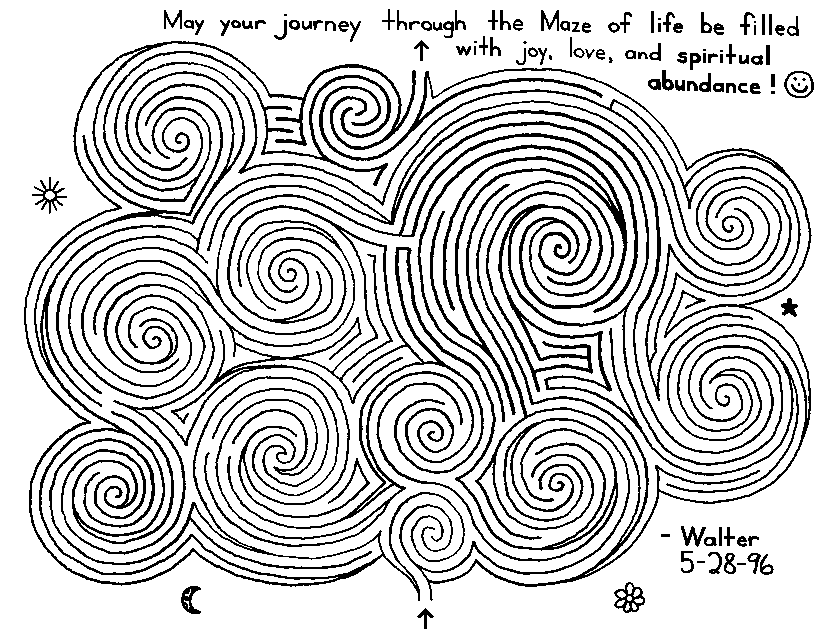 May your journey through the Maze of life be filled
with joy, love, and spiritual
abundance!
- Walter
5-28-96